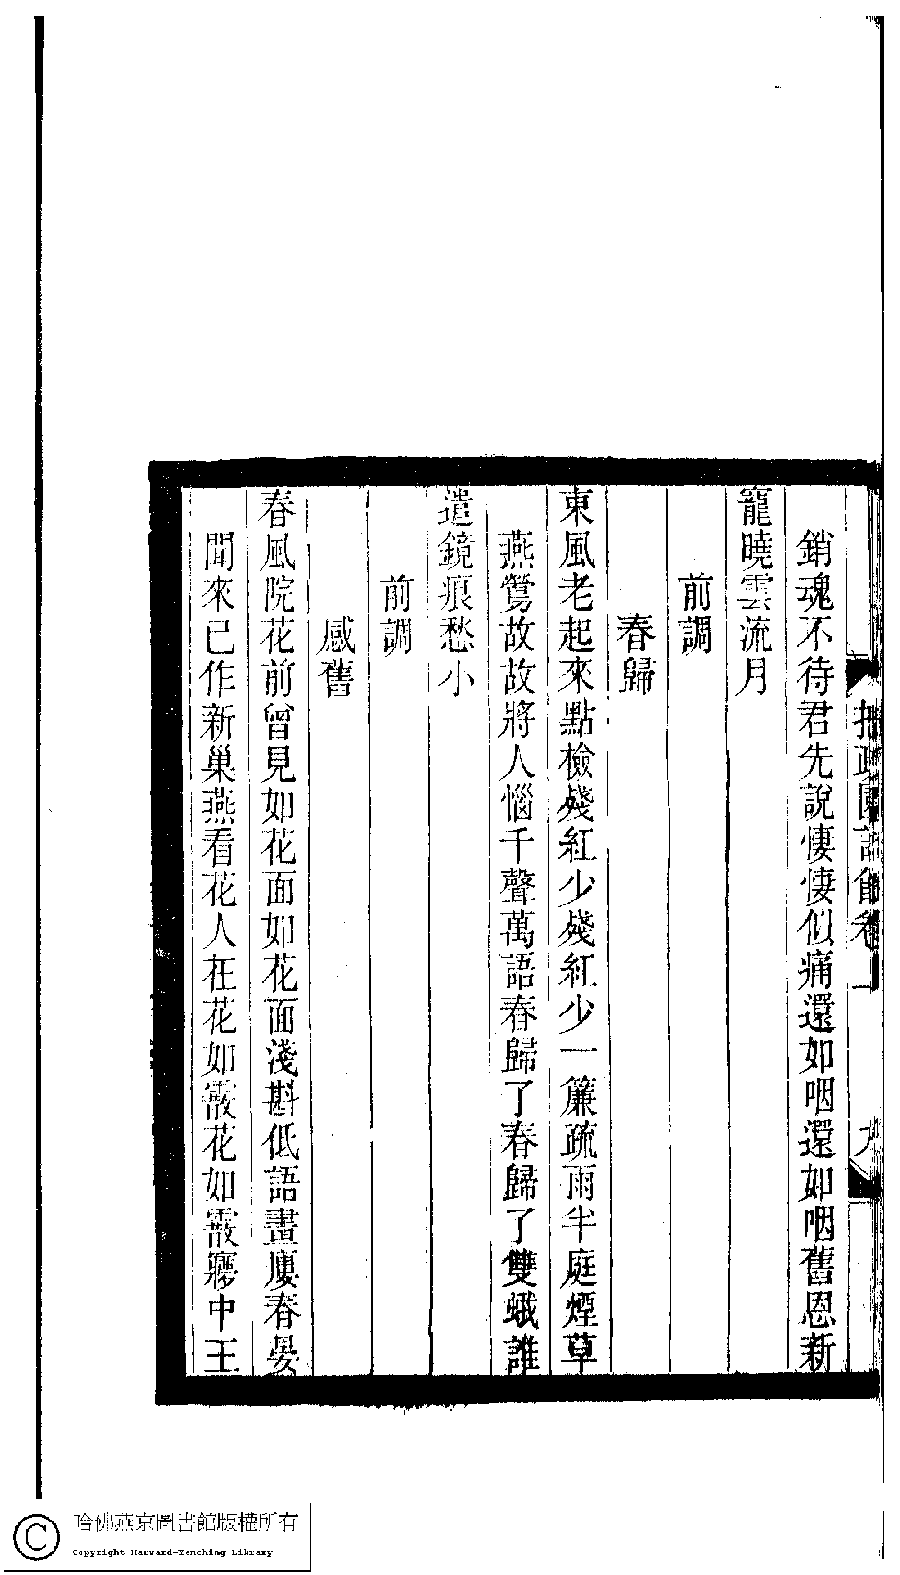 拙政園詩餘卷上
九
銷魂不待君先說悽悽似痛還如咽還如咽舊恩新
寵曉雲流月
前調
春歸
東風老起來點檢殘紅少殘紅少一簾疏雨半庭煙草
燕鶯故故將人惱千聲萬語春歸了春歸了雙蛾誰
遣鏡痕愁小
前調
感舊
春風院花前曾見如花面如花面淺斟低語畫廔春晏
聞來已作新巢燕看花人在花如霰花如霰寢中王
哈佛燕京圖書館版權所有
Copyright Harvard-Yenching Library